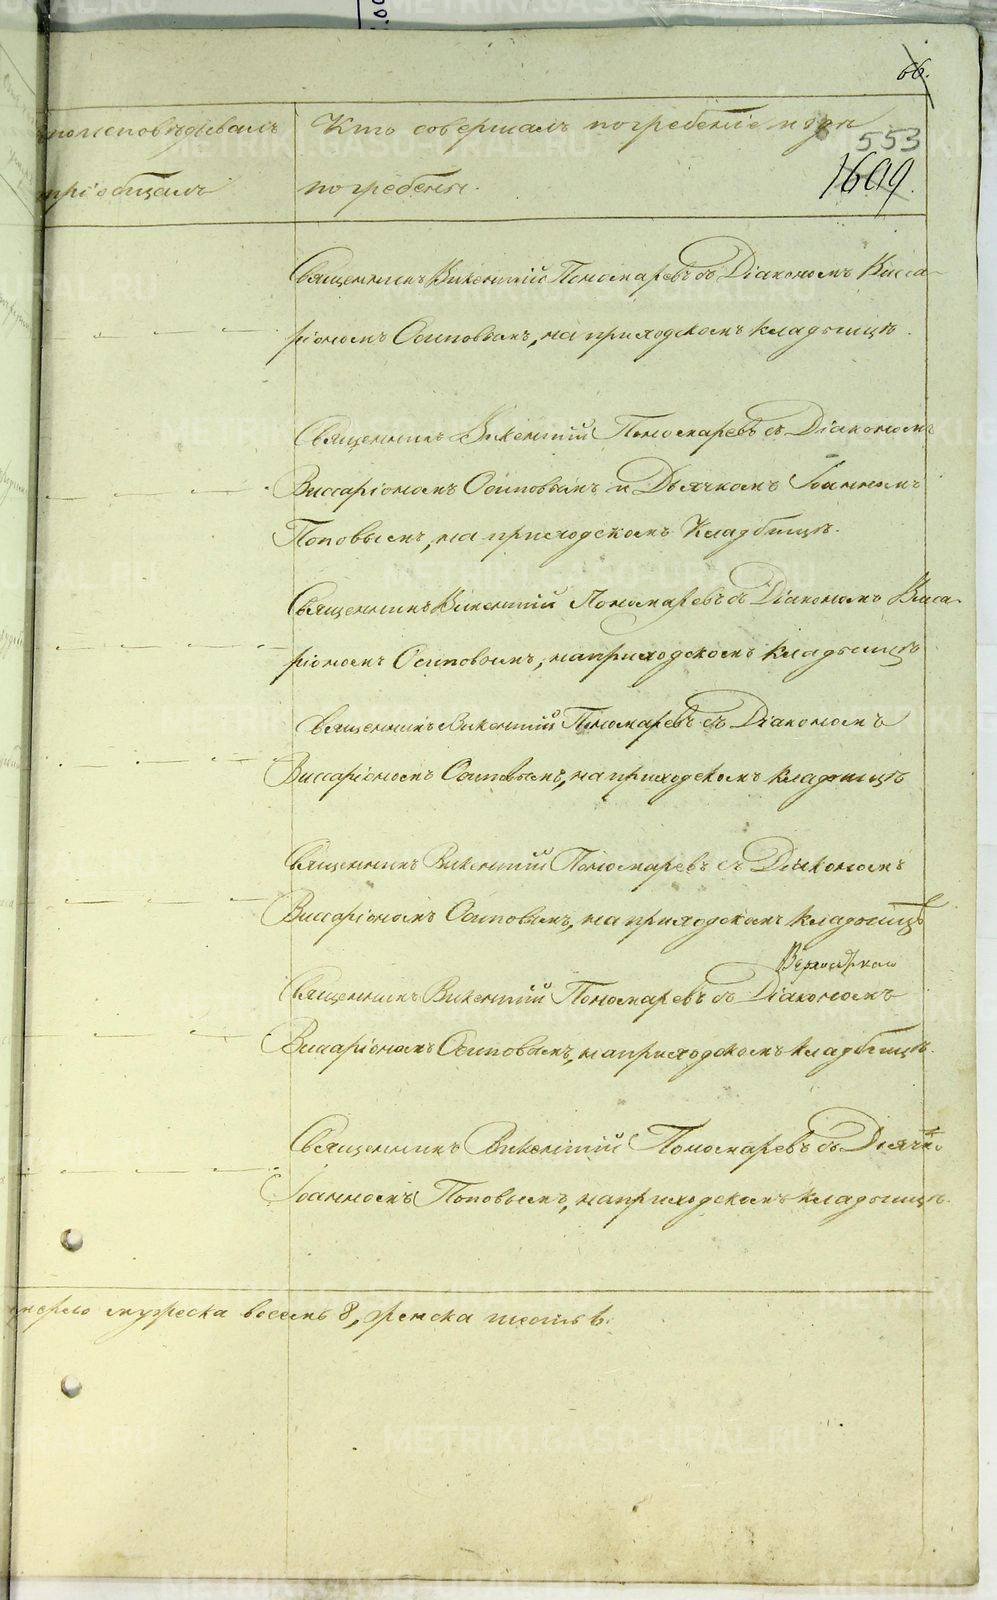 66.
исповѣдывалъ
Кто совершалъ погребеніе и гдѣ
553
пріобщалъ
погребены.
1609.
Священникъ Викентій Пономаревъ съ Діакономъ Висса-
ріономъ Осиповымъ, на приходскомъ кладбищѣ.
Священникъ Викентій Пономаревъ съ Діакономъ
Виссаріономъ Осиповымъ и Дьячкомъ Іоанномъ
Поповымъ, на приходскомъ Кладбищѣ.
Священникъ Викентій Пономаревъ съ Діакономъ Висса-
ріономъ Осиповымъ, на приходскомъ кладбищѣ
Священникъ Викентій Пономаревъ съ Діакономъ
Виссаріономъ Осиповымъ, на приходскомъ кладбищѣ
Священникъ Викентій Пономаревъ съ Діакономъ
Виссаріономъ Осиповымъ, на приходскомъ кладбищѣ
Священникъ Викентій Пономаревъ съ Діакономъ
Виссаріономъ Осиповымъ, на приходскомъ кладбищѣ.
Священникъ Викентій Пономаревъ съ Дьячко
Іоанномъ Поповымъ, на приходскомъ кладбищѣ.
мужеска восемь 8, женска шесть 6.
METRIKI.GASO-URAL.RU